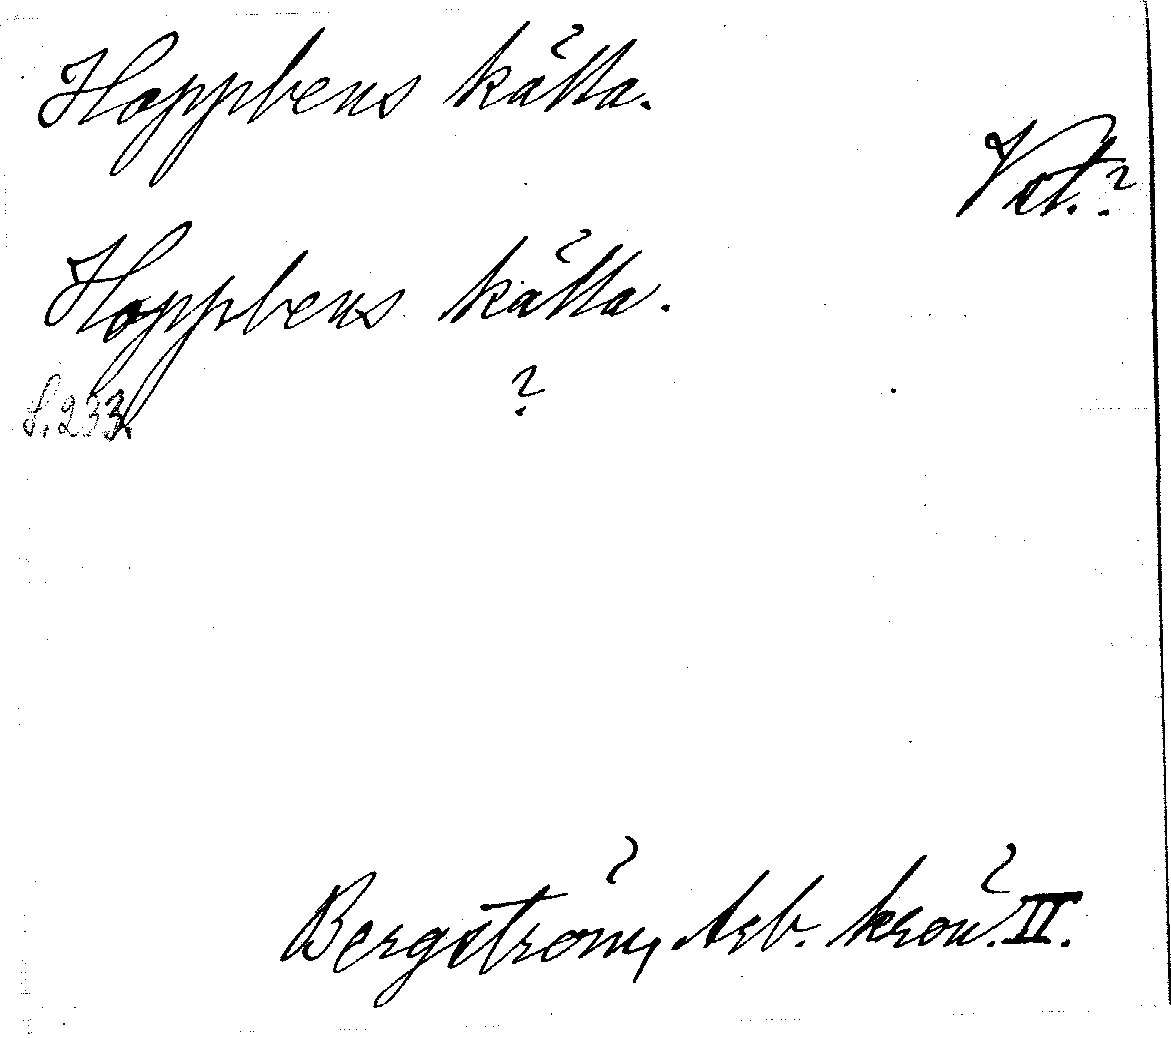 Hoppbens källa.
Vst.?
Hoppbens källa.
?
S. 233.
Bergström, Arb. krön. II.